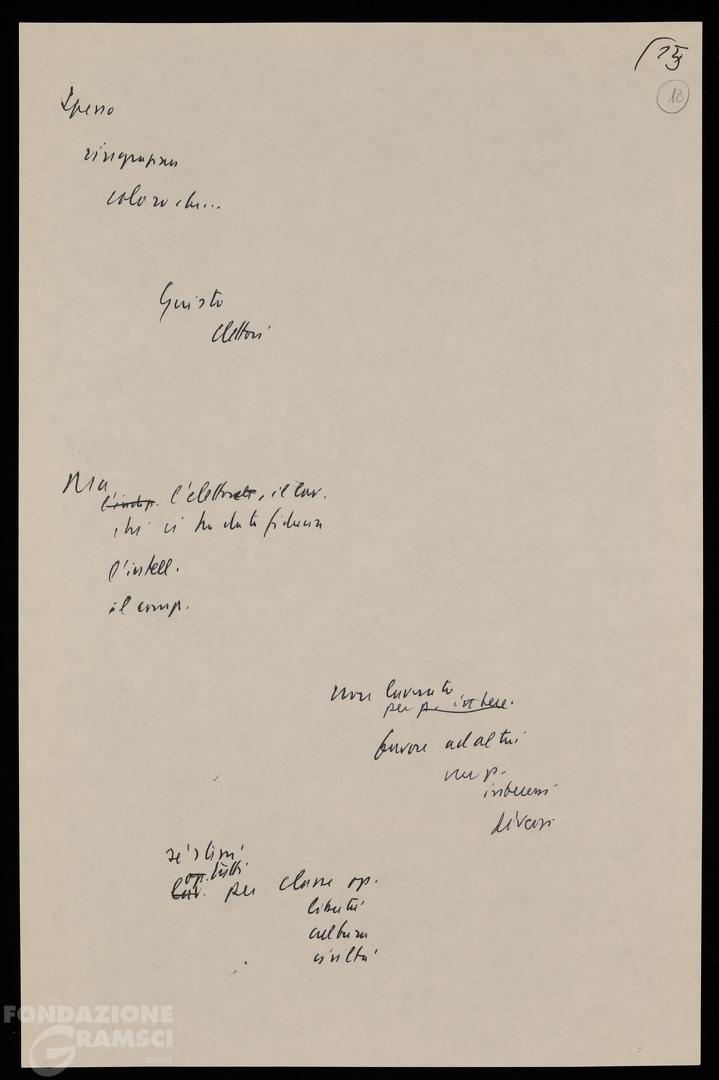 (15
18
Spesso
ringraziare
coloro che...
Giusto
elettori
Ma
l'indip. l'elettorato, il lav.
che ci ha dato fiducia
l'intell.
il comp.
non lavorato
per p. intere.
favore ad altri
per p.
interessi
diversi
op. tutti
lav. per classe op.
libertà
cultura
civiltà
FONDAZIONE
GRAMSCI
onlus